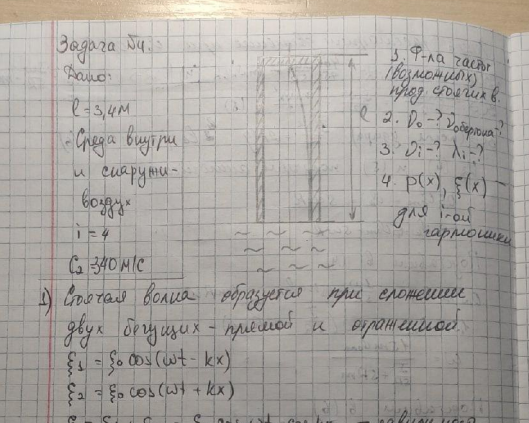 Задача №4.
Дано:
l = 3,4 м
Среда внутри
и снаружи -
воздух
i = 4
C₂ = 340 м/с
l
1. Ф-ла частот
(возможных)
прод. стоячих в.
2. ν₀ - ? νобертона - ?
3. νi - ? λi - ?
4. p(x), ξ(x) -
для i-ой
гармоники
1) Стоячая волна образуется при сложении
двух бегущих - прямой и отраженной.
ξ₁ = ξ₀ cos(ωt - kx)
ξ₂ = ξ₀ cos(ωt + kx)